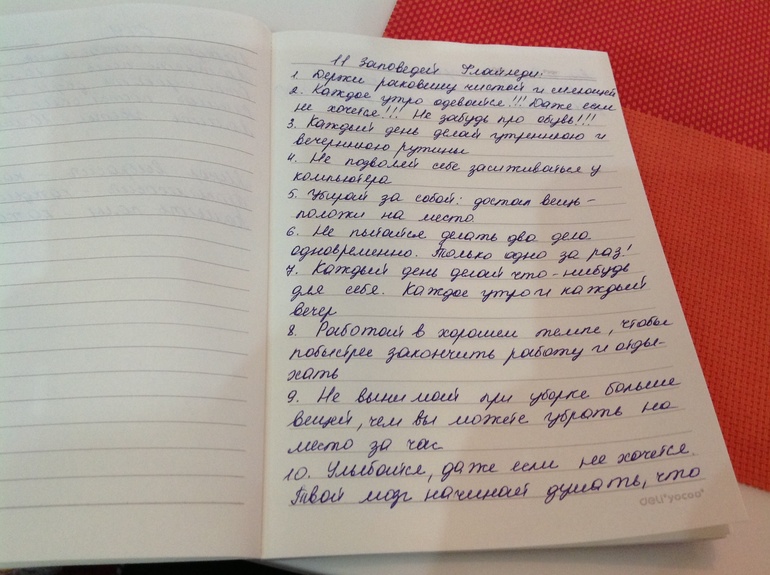 11 Заповедей Флайледи:
1. Держи раковину чистой и сияющей
2. Каждое утро одевайся!!! Даже если
не хочется!!! Не забудь про обувь!!!
3. Каждый день делай утреннюю и
вечернюю рутины
4. Не позволяй себе засиживаться у
компьютера
5. Убирай за собой: достал вещь -
положи на место
6. Не пытайся делать два дела
одновременно. Только одно за раз!
7. Каждый день делай что-нибудь
для себя. Каждое утро и каждый
вечер
8. Работай в хорошем темпе, чтобы
побыстрее закончить работу и отды-
хать
9. Не вынимай при уборке больше
вещей, чем вы можете убрать на
место за час
10. Улыбайся, даже если не хочется.
Твой мозг начинай думать, что
deli yocoo